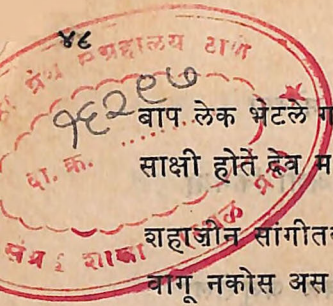 ४८
ग्रंथ संग्रहालय ठाणे
१६२९७
दा. क्र.
बाप लेक भेटले
साक्षी होतें देव
शहाजीनं सांगीतलं
वागू नकोस अस
शाखा